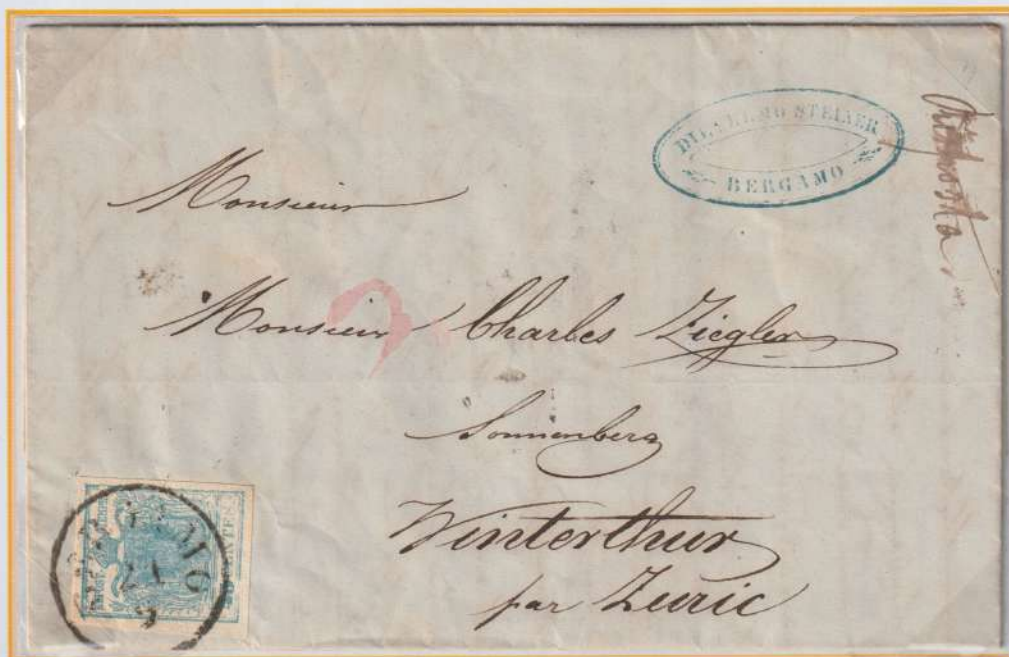 STEINER
BERGAMO
Monsieur
Monsieur Charles Ziegler
Sonnenberg
Winterthur
par Zuric
BERGAMO
21
9
CENTES